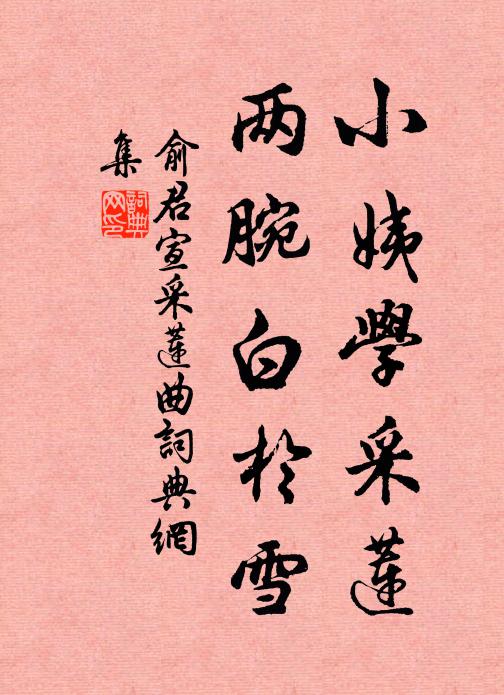 小姨學采蓮
两腕白於雪
俞君宣采蓮曲詞典網
集
詞典
网印